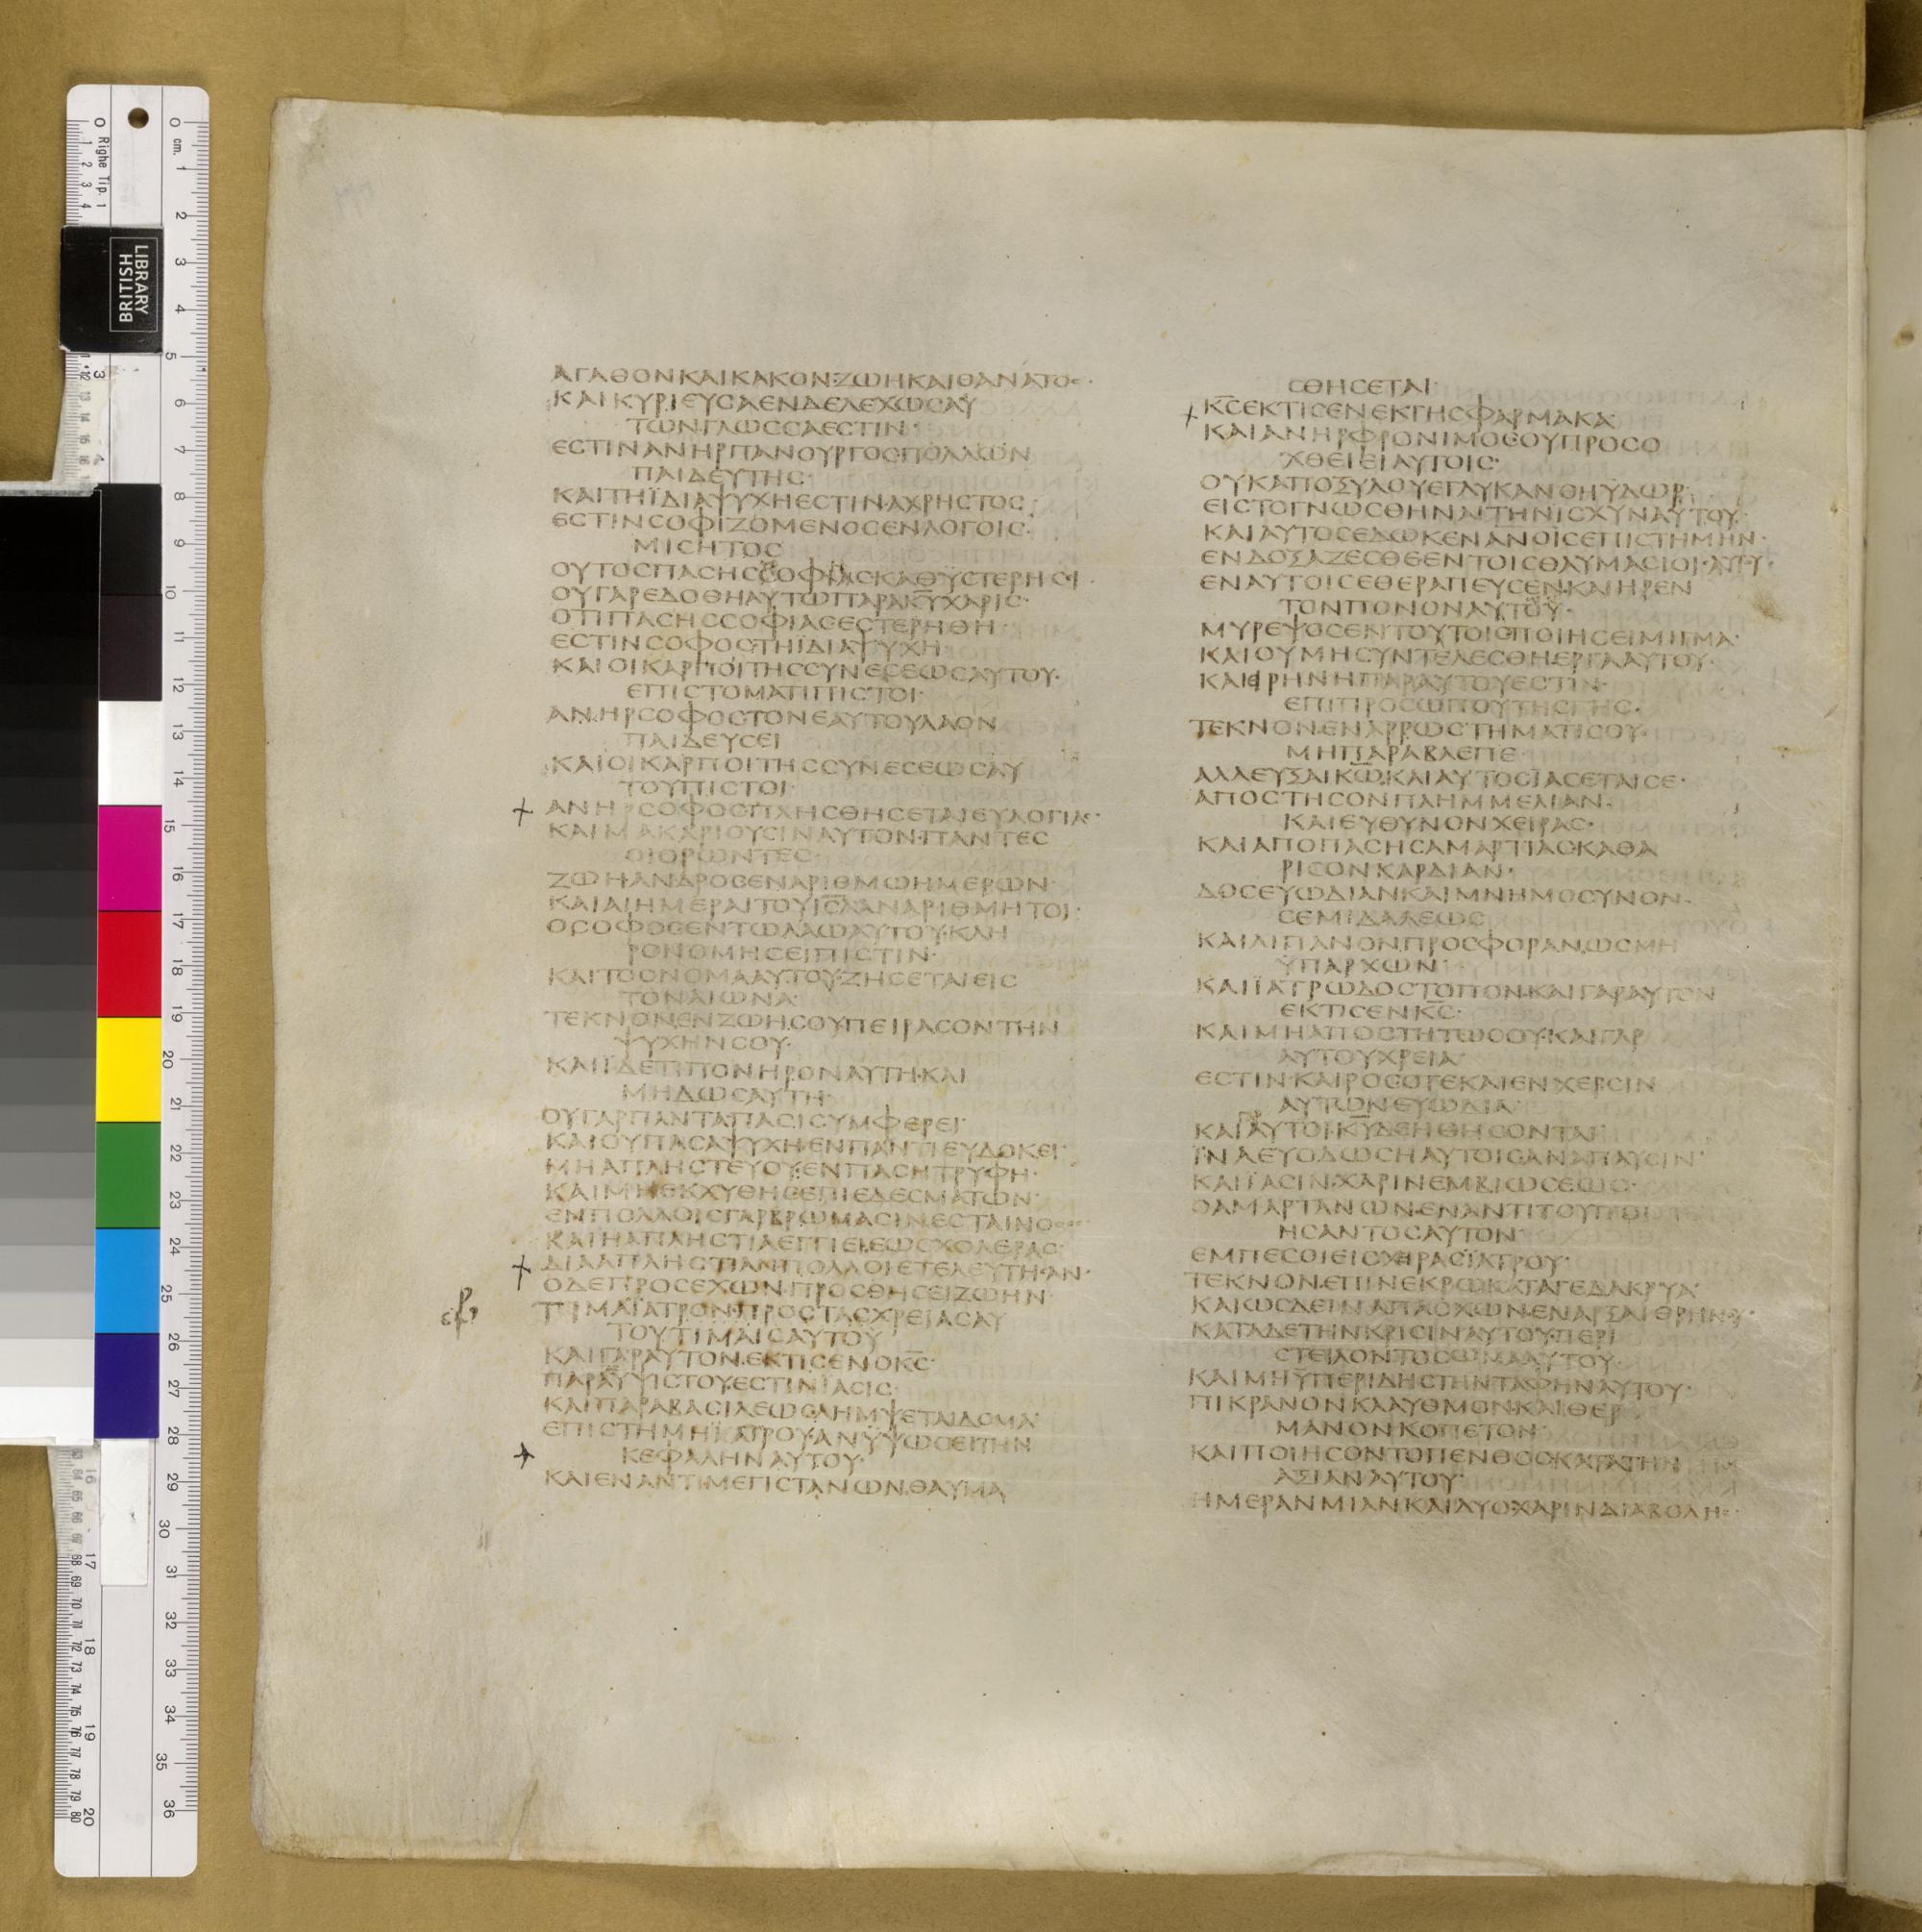 ΑΓΑΘΟΝΚΑΙΚΑΚΟΝ·ΖΩΗΚΑΙΘΑΝΑΤΟϹ·
ΚΑΙΚΥΡΙΕΥϹΑΕΝΔΕΛΕΧΩϹΑΥ
ΤΩΝΓΛΩϹϹΑΕϹΤΙΝ·
ΕϹΤΙΝΑΝΗΡΠΑΝΟΥΡΓΟϹΠΟΛΛΩΝ
ΠΑΙΔΕΥΤΗϹ·
ΚΑΙΤΗΪΔΙΑΨΥΧΗΕϹΤΙΝΑΧΡΗϹΤΟϹ·
ΕϹΤΙΝϹΟΦΙΖΟΜΕΝΟϹΕΝΛΟΓΟΙϹ·
ΜΙϹΗΤΟϹ
ΟΥΤΟϹΠΑϹΗϹ
ΟΥΓΑΡΕΔΟΘΗΑΥΤΩΠΑΡΑΚΥΧΑΡΙϹ·
ΟΤΙΠΑϹΗϹϹΟΦΙΑϹΕϹΤΕΡΗΘΗ·
ΕϹΤΙΝϹΟΦΟϹΤΗΪΔΙΑΨΥΧΗ·
ΚΑΙΟΙΚΑΡΠΟΙΤΗϹϹΥΝΕϹΕΩϹΑΥΤΟΥ·
ΕΠΙϹΤΟΜΑΤΙΠΙϹΤΟΙ·
ΑΝΗΡϹΟΦΟϹΤΟΝΕΑΥΤΟΥΛΑΟΝ
ΠΑΙΔΕΥϹΕΙ
ΚΑΙΟΙΚΑΡΠΟΙΤΗϹϹΥΝΕϹΕΩϹΑΥ
ΤΟΥΠΙϹΤΟΙ·
ΑΝΗΡϹΟΦΟϹΠΛΗϹΘΗϹΕΤΑΙΕΥΛΟΓΙΑϹ·
ΚΑΙΜΑΚΑΡΙΟΥϹΙΝΑΥΤΟΝΠΑΝΤΕϹ
ΟΙΟΡΩΝΤΕϹ·
ΖΩΗΑΝΔΡΟϹΕΝΑΡΙΘΜΩΗΜΕΡΩΝ·
ΚΑΙΑΙΗΜΕΡΑΙΤΟΥΙϹΛΑΝΑΡΙΘΜΗΤΟΙ·
ΟϹΟΦΟϹΕΝΤΩΛΑΩΑΥΤΟΥΚΛΗ
ΡΟΝΟΜΗϹΕΙΠΙϹΤΙΝ·
ΚΑΙΤΟΟΝΟΜΑΑΥΤΟΥΖΗϹΕΤΑΙΕΙϹ
ΤΟΝΑΙΩΝΑ·
ΤΕΚΝΟΝΕΝΖΩΗϹΟΥΠΕΙΡΑϹΟΝΤΗΝ
ΨΥΧΗΝϹΟΥ·
ΚΑΙΪΔΕΤΙΠΟΝΗΡΟΝΑΥΤΗ·ΚΑΙ
ΜΗΔΩϹΑΥΤΗ·
ΟΥΓΑΡΠΑΝΤΑΠΑϹΙϹΥΜΦΕΡΕΙ·
ΚΑΙΟΥΠΑϹΑΨΥΧΗΕΝΠΑΝΤΙΕΥΔΟΚΕΙ·
ΜΗΑΠΛΗϹΤΕΥΟΥΕΝΠΑϹΗΤΡΥΦΗ·
ΚΑΙΜΗΕΚΧΥΘΗϹΕΠΙΕΔΕϹΜΑΤΩΝ·
ΕΝΠΟΛΛΟΙϹΓΑΡΒΡΩΜΑϹΙΝΕϹΤΑΙΝΟϹΟϹ
ΚΑΙΗΑΠΛΗϹΤΙΑΕΓΓΙΕΙΕΩϹΧΟΛΕΡΑϹ·
ΔΙΑΑΠΛΗϹΤΙΑΝΠΟΛΛΟΙΕΤΕΛΕΥΤΗϹΑΝ·
ΟΔΕΠΡΟϹΕΧΩΝΠΡΟϹΘΗϹΕΙΖΩΗΝ·
ΤΙΜΑΪΑΤΡΟΝΠΡΟϹΤΑϹΧΡΕΙΑϹΑΥ
ΤΟΥΤΙΜΑΙϹΑΥΤΟΥ
ΚΑΙΓΑΡΑΥΤΟΝΕΚΤΙϹΕΝΟΚϹ·
ΠΑΡΑΫΨΙϹΤΟΥΕϹΤΙΝΙΑϹΙϹ
ΚΑΙΠΑΡΑΒΑϹΙΛΕΩϹΛΗΜΨΕΤΑΙΔΟΜΑ·
ΕΠΙϹΤΗΜΗΪΑΤΡΟΥΑΝΥΨΩϹΕΙΤΗΝ
ΚΕΦΑΛΗΝΑΥΤΟΥ·
ΚΑΙΕΝΑΝΤΙΜΕΓΙϹΤΑΝΩΝΘΑΥΜΑ
ϹΘΗϹΕΤΑΙ·
ΚϹΕΚΤΙϹΕΝΕΚΓΗϹΦΑΡΜΑΚΑ·
ΚΑΙΑΝΗΡΦΡΟΝΙΜΟϹΟΥΠΡΟϹΟ
ΧΘΕΙΕΙΑΥΤΟΙϹ·
ΟΥΚΑΠΟΞΥΛΟΥΕΓΛΥΚΑΝΘΗΫΔΩΡ·
ΕΙϹΤΟΓΝΩϹΘΗΝΑΙΤΗΝΙϹΧΥΝΑΥΤΟΥ·
ΚΑΙΑΥΤΟϹΕΔΩΚΕΝΑΝΟΙϹΕΠΙϹΤΗΜΗΝ·
ΕΝΔΟΞΑΖΕϹΘΕΕΝΤΟΙϹΘΑΥΜΑϹΙΟΙϹΑΥΤΟΥ·
ΕΝΑΥΤΟΙϹΕΘΕΡΑΠΕΥϹΕΝΚΑΙΗΡΕΝ
ΤΟΝΠΟΝΟΝΑΥΤΟΥ·
ΜΥΡΕΨΟϹΕΝΤΟΥΤΟΙϹΠΟΙΗϹΕΙΜΙΓΜΑ·
ΚΑΙΟΥΜΗϹΥΝΤΕΛΕϹΘΗΕΡΓΑΑΥΤΟΥ·
ΚΑΙΕΙΡΗΝΗΠΑΡΑΥΤΟΥΕϹΤΙΝ·
ΕΠΙΠΡΟϹΩΠΟΥΤΗϹΓΗϹ·
ΤΕΚΝΟΝΕΝΑΡΡΩϹΤΗΜΑΤΙϹΟΥ·
ΜΗΠΑΡΑΒΛΕΠΕ·
ΑΛΛΕΥΞΑΙΚΩΚΑΙΑΥΤΟϹΪΑϹΕΤΑΙϹΕ·
ΑΠΟϹΤΗϹΟΝΠΛΗΜΜΕΛΙΑΝ·
ΚΑΙΕΥΘΥΝΟΝΧΕΙΡΑϹ·
ΚΑΙΑΠΟΠΑϹΗϹΑΜΑΡΤΙΑϹΚΑΘΑ
ΡΙϹΟΝΚΑΡΔΙΑΝ·
ΔΟϹΕΥΩΔΙΑΝΚΑΙΜΝΗΜΟϹΥΝΟΝ·
ϹΕΜΙΔΑΛΕΩϹ
ΚΑΙΛΙΠΑΝΟΝΠΡΟϹΦΟΡΑΝΩϹΜΗ
ΫΠΑΡΧΩΝ·
ΚΑΙΪΑΤΡΩΔΟϹΤΟΠΟΝΚΑΙΓΑΡΑΥΤΟΝ
ΕΚΤΙϹΕΝΚϹ·
ΚΑΙΜΗΑΠΟϹΤΗΤΩϹΟΥΚΑΙΓΑΡ
ΑΥΤΟΥΧΡΕΙΑ·
ΕϹΤΙΝΚΑΙΡΟϹΟΤΕΚΑΙΕΝΧΕΡϹΙΝ
ΑΥΤΩΝΕΥΩΔΙΑ·
ΚΑΙΑΥΤΟΙΚΥΔΕΗΘΗϹΟΝΤΑΙ
ΪΝΑΕΥΟΔΩϹΗΑΥΤΟΙϹΑΝΑΠΑΥϹΙΝ·
ΚΑΙΪΑϹΙΝΧΑΡΙΝΕΜΒΙΩϹΕΩϹ·
ΟΑΜΑΡΤΑΝΩΝΕΝΑΝΤΙΤΟΥΠΟΙ
ΗϹΑΝΤΟϹΑΥΤΟΝ·
ΕΜΠΕϹΟΙΕΙϹΧΕΙΡΑϹΪΑΤΡΟΥ·
ΤΕΚΝΟΝΕΠΙΝΕΚΡΩΚΑΤΑΓΕΔΑΚΡΥΑ·
ΚΑΙΩϹΔΕΙΝΑΠΑϹΧΩΝΕΝΑΡΞΑΙΘΡΗΝΟΥ·
ΚΑΤΑΔΕΤΗΝΚΡΙϹΙΝΑΥΤΟΥΠΕΡΙ
ϹΤΕΙΛΟΝΤΟϹΩΜΑΑΥΤΟΥ·
ΚΑΙΜΗΫΠΕΡΙΔΗϹΤΗΝΤΑΦΗΝΑΥΤΟΥ·
ΠΙΚΡΑΝΟΝΚΛΑΥΘΜΟΝΚΑΙΘΕΡ
ΜΑΝΟΝΚΟΠΕΤΟΝ·
ΚΑΙΠΟΙΗϹΟΝΤΟΠΕΝΘΟϹΚΑΤΑΤΗΝ
ΑΞΙΑΝΑΥΤΟΥ·
ΗΜΕΡΑΝΜΙΑΝΚΑΙΔΥΟΧΑΡΙΝΔΙΑΒΟΛΗϹ·
BRITISH
LIBRARY